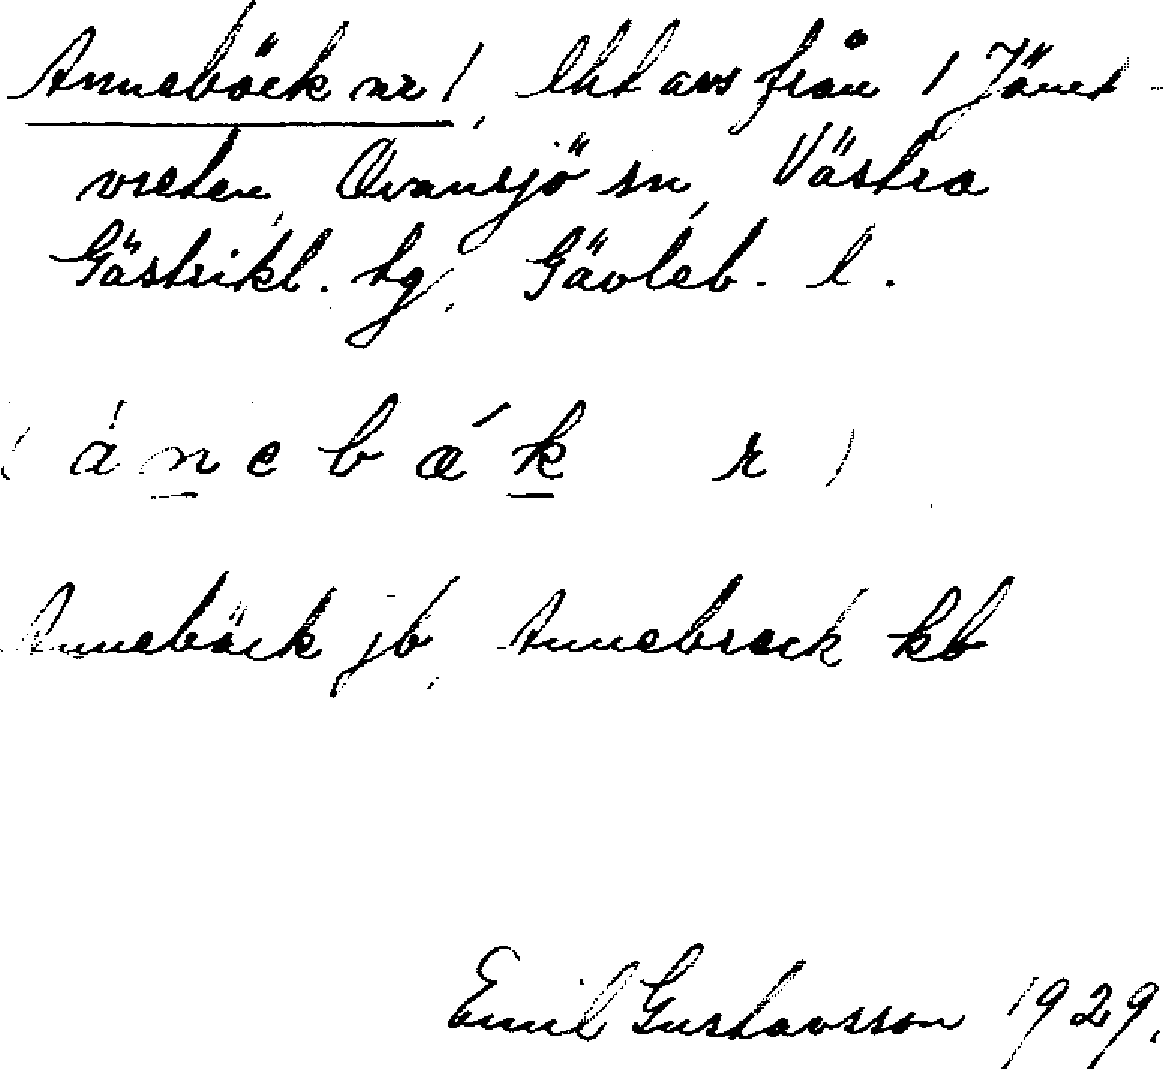 Anneböck nr 1, lht avs från 1 Jänet-
vreten, Ovansjö sn, Västra
Gästrikl. tg, Gävleb. l.
(ánebǽk r)
Anneböck jb, Annebreck kb
Emil Gustavsson 1929.